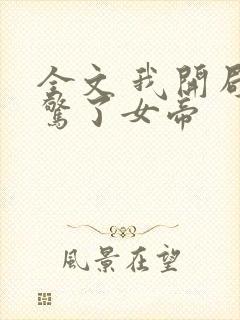 全文我開局
驚了女帝
風景在望